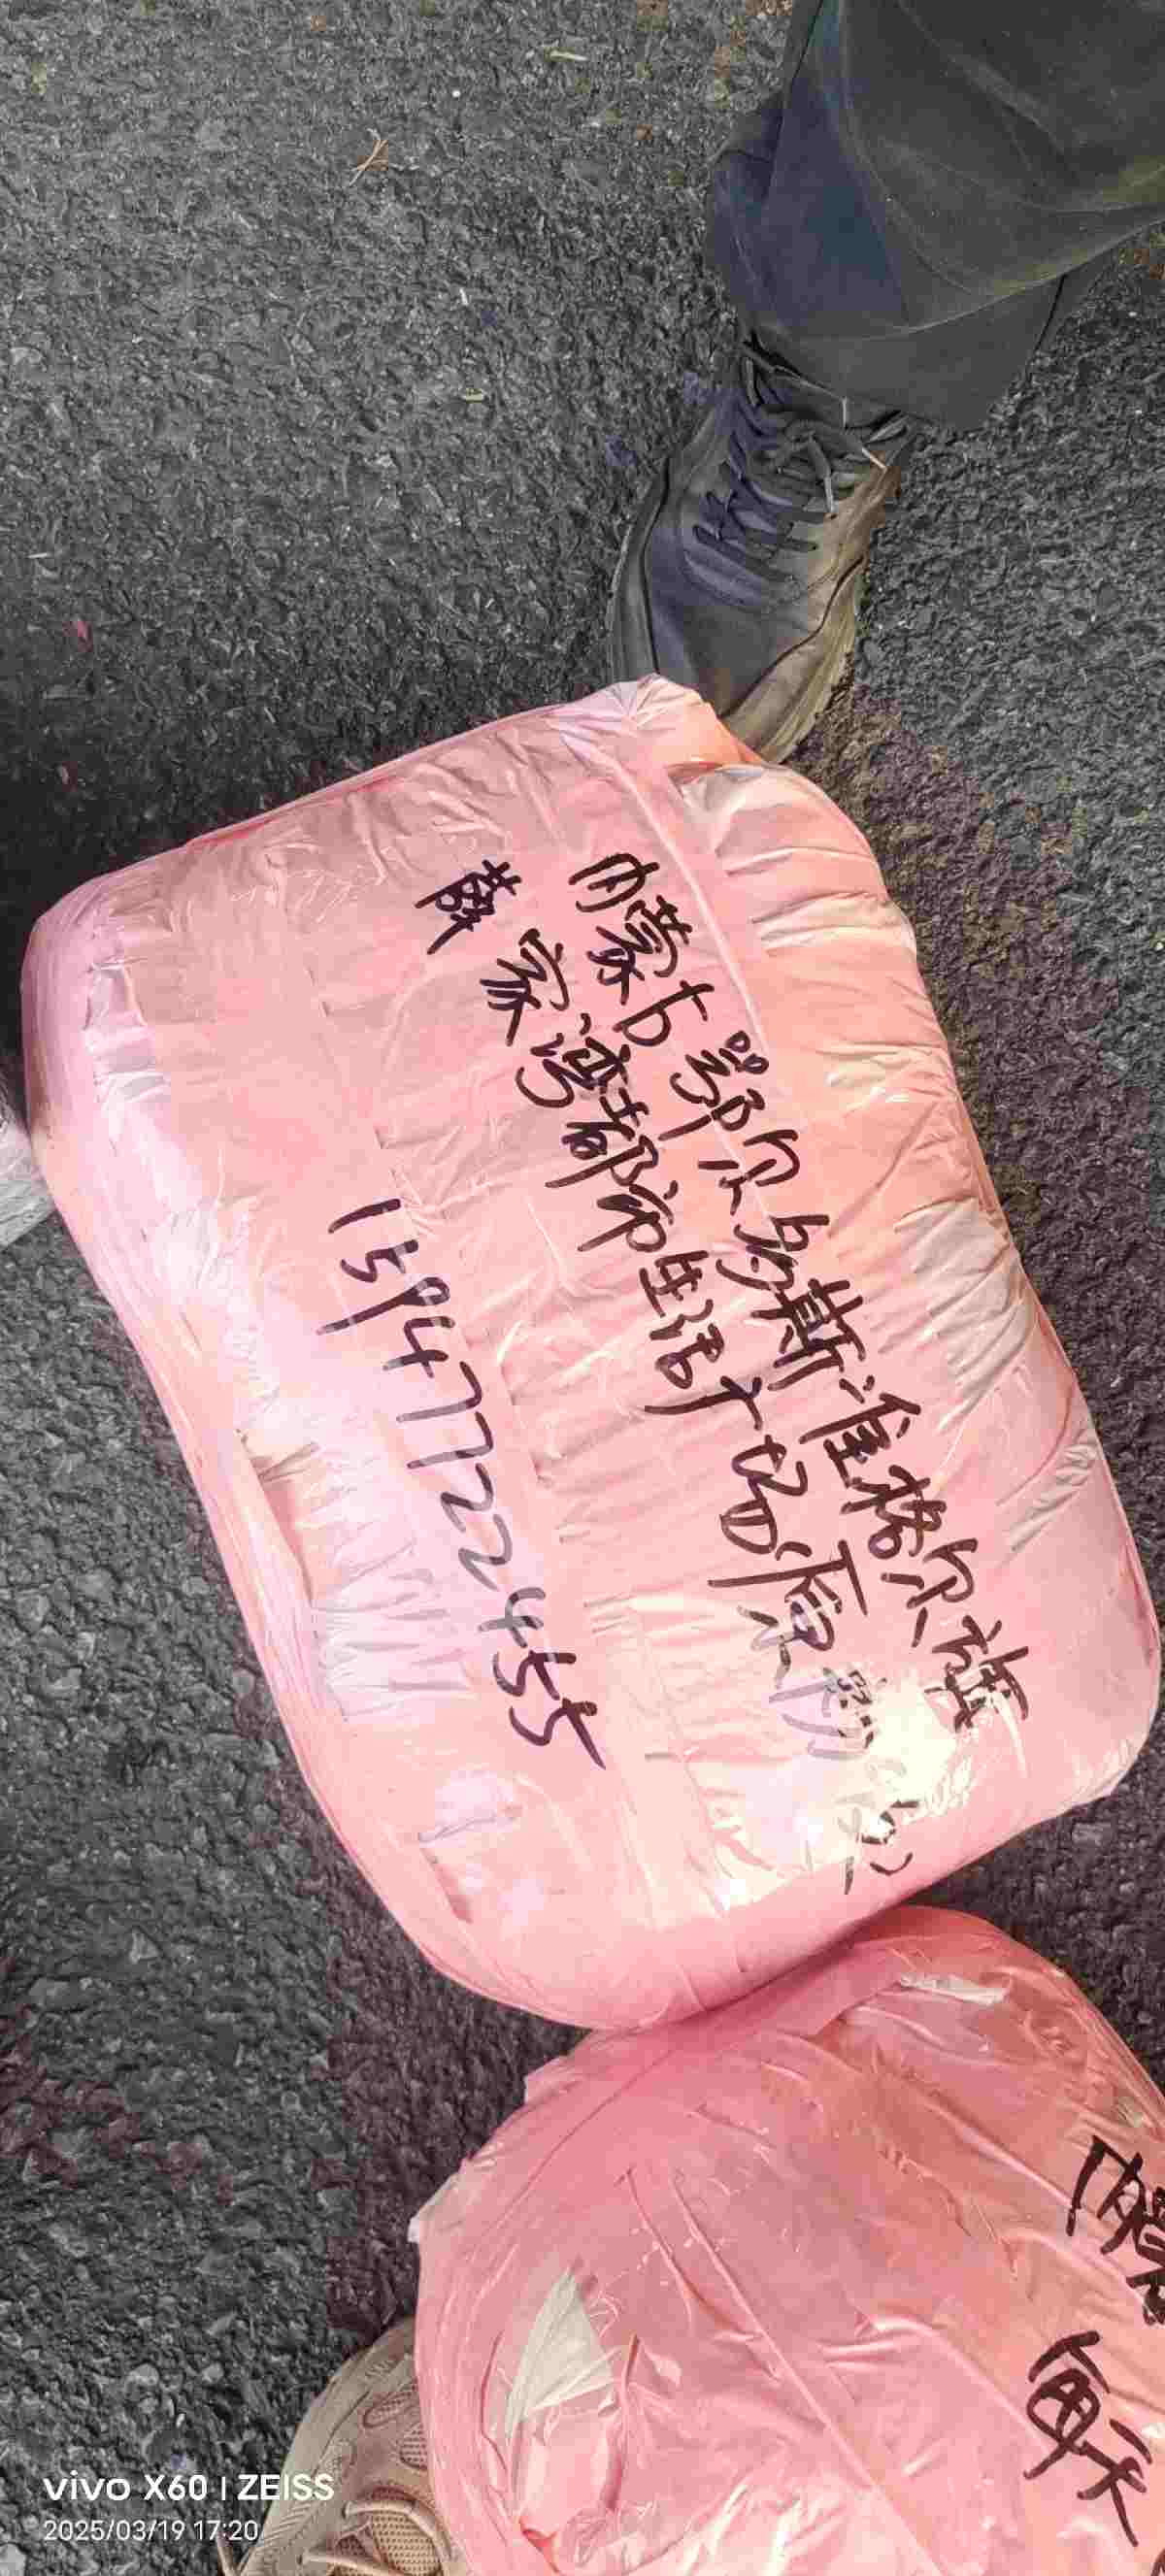 内蒙古鄂尔多斯准格尔旗
薛家湾都市生活广场底
15947722455
内蒙
每天
vivo X60 | ZEISS
2025/03/19 17:20